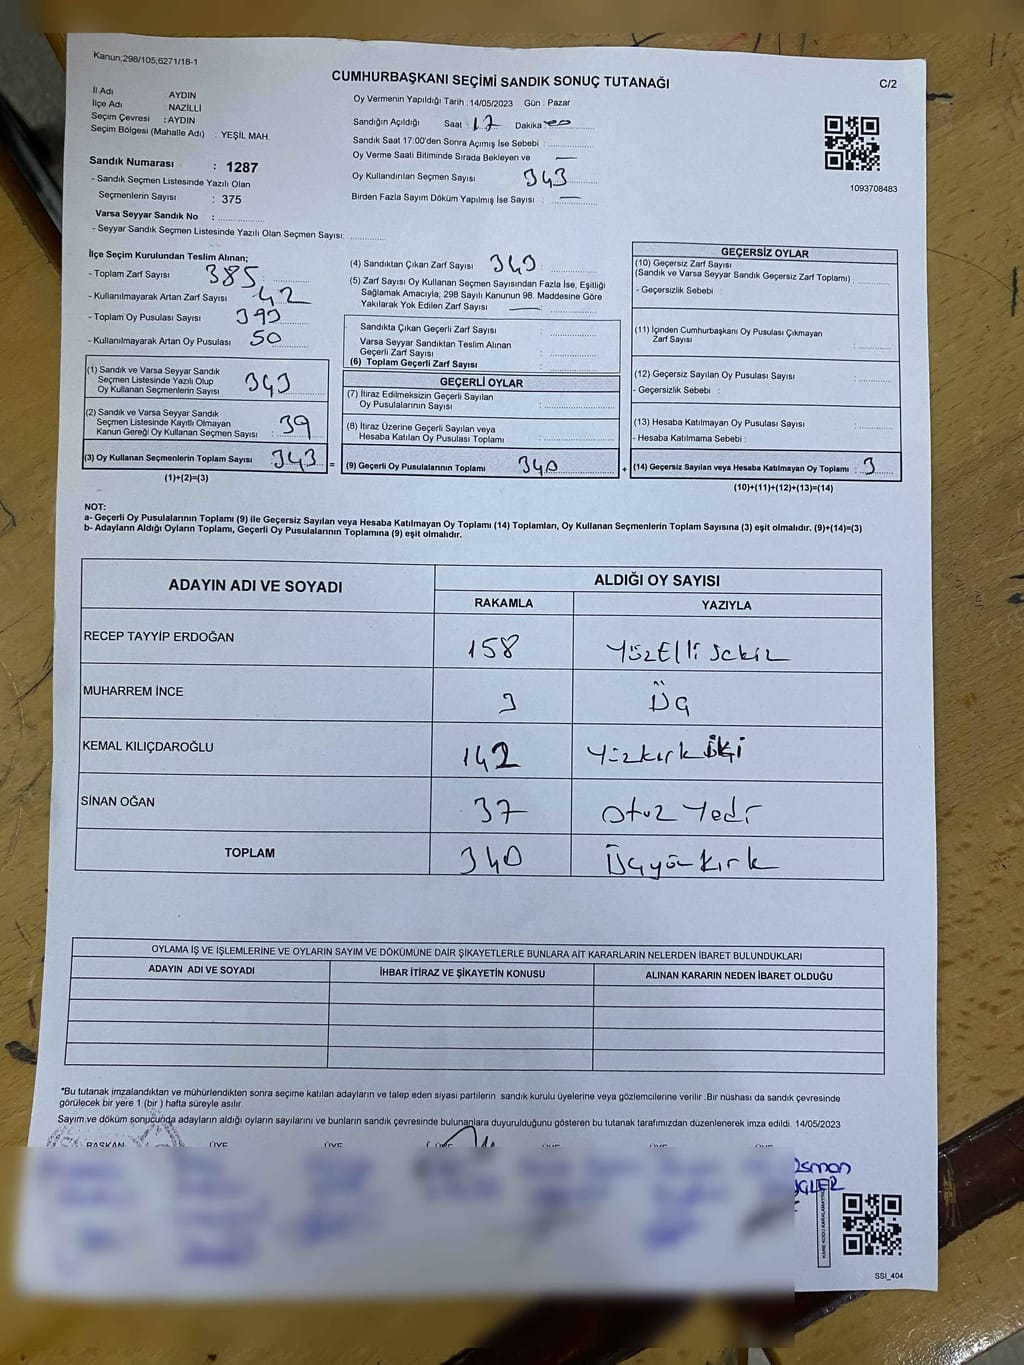 Kanun;298/105,6271/18-1
CUMHURBAŞKANI SEÇİMİ SANDIK SONUÇ TUTANAĞI
C/2
İl Adı AYDIN
İlçe Adı : NAZİLLİ
Seçim Çevresi : AYDIN
Seçim Bölgesi (Mahalle Adı) : YEŞİL MAH.
Sandık Numarası : 1287
- Sandık Seçmen Listesinde Yazılı Olan
Seçmenlerin Sayısı : 375
Varsa Seyyar Sandık No :
- Seyyar Sandık Seçmen Listesinde Yazılı Olan Seçmen Sayısı:
Oy Vermenin Yapıldığı Tarih : 14/05/2023 Gün : Pazar
Sandığın Açıldığı Saat 17 Dakika 00
Sandık Saat 17:00'den Sonra Açılmış İse Sebebi :
Oy Verme Saati Bitiminde Sırada Bekleyen ve —
Oy Kullandırılan Seçmen Sayısı 343
Birden Fazla Sayım Döküm Yapılmış İse Sayısı : —
1093708483
İlçe Seçim Kurulundan Teslim Alınan;
- Toplam Zarf Sayısı 385
- Kullanılmayarak Artan Zarf Sayısı 42
- Toplam Oy Pusulası Sayısı 393
- Kullanılmayarak Artan Oy Pusulası 50
(1) Sandık ve Varsa Seyyar Sandık
Seçmen Listesinde Yazılı Olup
Oy Kullanan Seçmenlerin Sayısı 343
(2) Sandık ve Varsa Seyyar Sandık
Seçmen Listesinde Kayıtlı Olmayan
Kanun Gereği Oy Kullanan Seçmen Sayısı : 39
(3) Oy Kullanan Seçmenlerin Toplam Sayısı 343 =
(1)+(2)=(3)
(4) Sandıktan Çıkan Zarf Sayısı 343
(5) Zarf Sayısı Oy Kullanan Seçmen Sayısından Fazla İse, Eşitliği
Sağlamak Amacıyla, 298 Sayılı Kanunun 98. Maddesine Göre
Yakılarak Yok Edilen Zarf Sayısı — :
Sandıkta Çıkan Geçerli Zarf Sayısı :
Varsa Seyyar Sandıktan Teslim Alınan
Geçerli Zarf Sayısı :
(6) Toplam Geçerli Zarf Sayısı :
GEÇERLİ OYLAR
(7) İtiraz Edilmeksizin Geçerli Sayılan
Oy Pusulalarının Sayısı :
(8) İtiraz Üzerine Geçerli Sayılan veya
Hesaba Katılan Oy Pusulası Toplamı :
(9) Geçerli Oy Pusulalarının Toplamı 340 +
GEÇERSİZ OYLAR
(10) Geçersiz Zarf Sayısı
(Sandık ve Varsa Seyyar Sandık Geçersiz Zarf Toplamı) :
- Geçersizlik Sebebi :
(11) İçinden Cumhurbaşkanı Oy Pusulası Çıkmayan
Zarf Sayısı :
(12) Geçersiz Sayılan Oy Pusulası Sayısı :
- Geçersizlik Sebebi :
(13) Hesaba Katılmayan Oy Pusulası Sayısı :
- Hesaba Katılmama Sebebi :
(14) Geçersiz Sayılan veya Hesaba Katılmayan Oy Toplamı : 3
(10)+(11)+(12)+(13)=(14)
NOT:
a- Geçerli Oy Pusulalarının Toplamı (9) ile Geçersiz Sayılan veya Hesaba Katılmayan Oy Toplamı (14) Toplamları, Oy Kullanan Seçmenlerin Toplam Sayısına (3) eşit olmalıdır. (9)+(14)=(3)
b- Adayların Aldığı Oyların Toplamı, Geçerli Oy Pusulalarının Toplamına (9) eşit olmalıdır.
ADAYIN ADI VE SOYADI ALDIĞI OY SAYISI
RAKAMLA YAZIYLA
RECEP TAYYİP ERDOĞAN 158 YüzElli Sekiz
MUHARREM İNCE 3 Üç
KEMAL KILIÇDAROĞLU 142 Yüzkırk İki
SİNAN OĞAN 37 Otuz Yedi
TOPLAM 340 Üçyüz kırk
OYLAMA İŞ VE İŞLEMLERİNE VE OYLARIN SAYIM VE DÖKÜMÜNE DAİR ŞİKAYETLERLE BUNLARA AİT KARARLARIN NELERDEN İBARET BULUNDUKLARI
ADAYIN ADI VE SOYADI İHBAR İTİRAZ VE ŞİKAYETİN KONUSU ALINAN KARARIN NEDEN İBARET OLDUĞU
*Bu tutanak imzalandıktan ve mühürlendikten sonra seçime katılan adayların ve talep eden siyasi partilerin sandık kurulu üyelerine veya gözlemcilerine verilir .Bir nüshası da sandık çevresinde
görülecek bir yere 1 (bir ) hafta süreyle asılır.
Sayım ve döküm sonucunda adayların aldığı oyların sayılarını ve bunların sandık çevresinde bulunanlara duyurulduğunu gösteren bu tutanak tarafımızdan düzenlenerek imza edildi. 14/05/2023
BAŞKAN ÜYE ÜYE
Osman
SSI_404